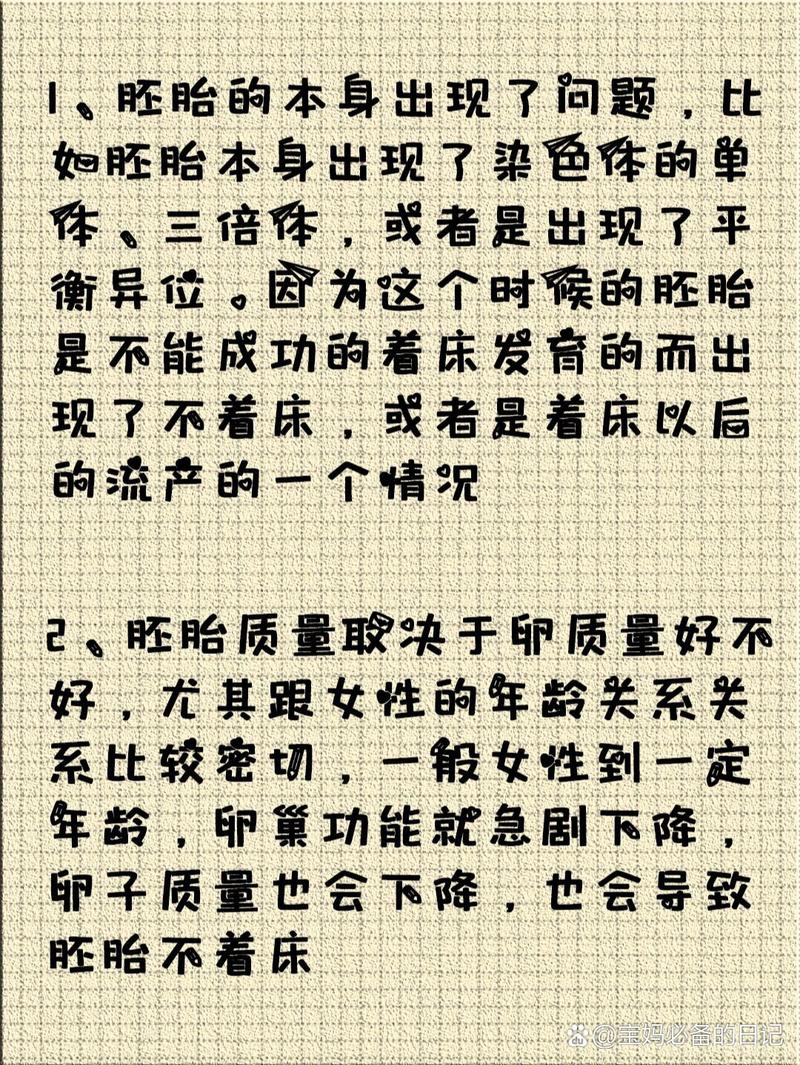 1、胚胎的本身出现了问题，比
如胚胎本身出现了染色体的单
体、三倍体，或者是出现了平
衡异位。因为这个时候的胚胎
是不能成功的着床发育的而出
现了不着床，或者是着床以后
的流产的一个情况
2、胚胎质量取决于卵质量好不
好，尤其跟女性的年龄关系关
系比较密切，一般女性到一定
年龄，卵巢功能就急剧下降，
卵子质量也会下降，也会导致
胚胎不着床
@宝妈必备的日记